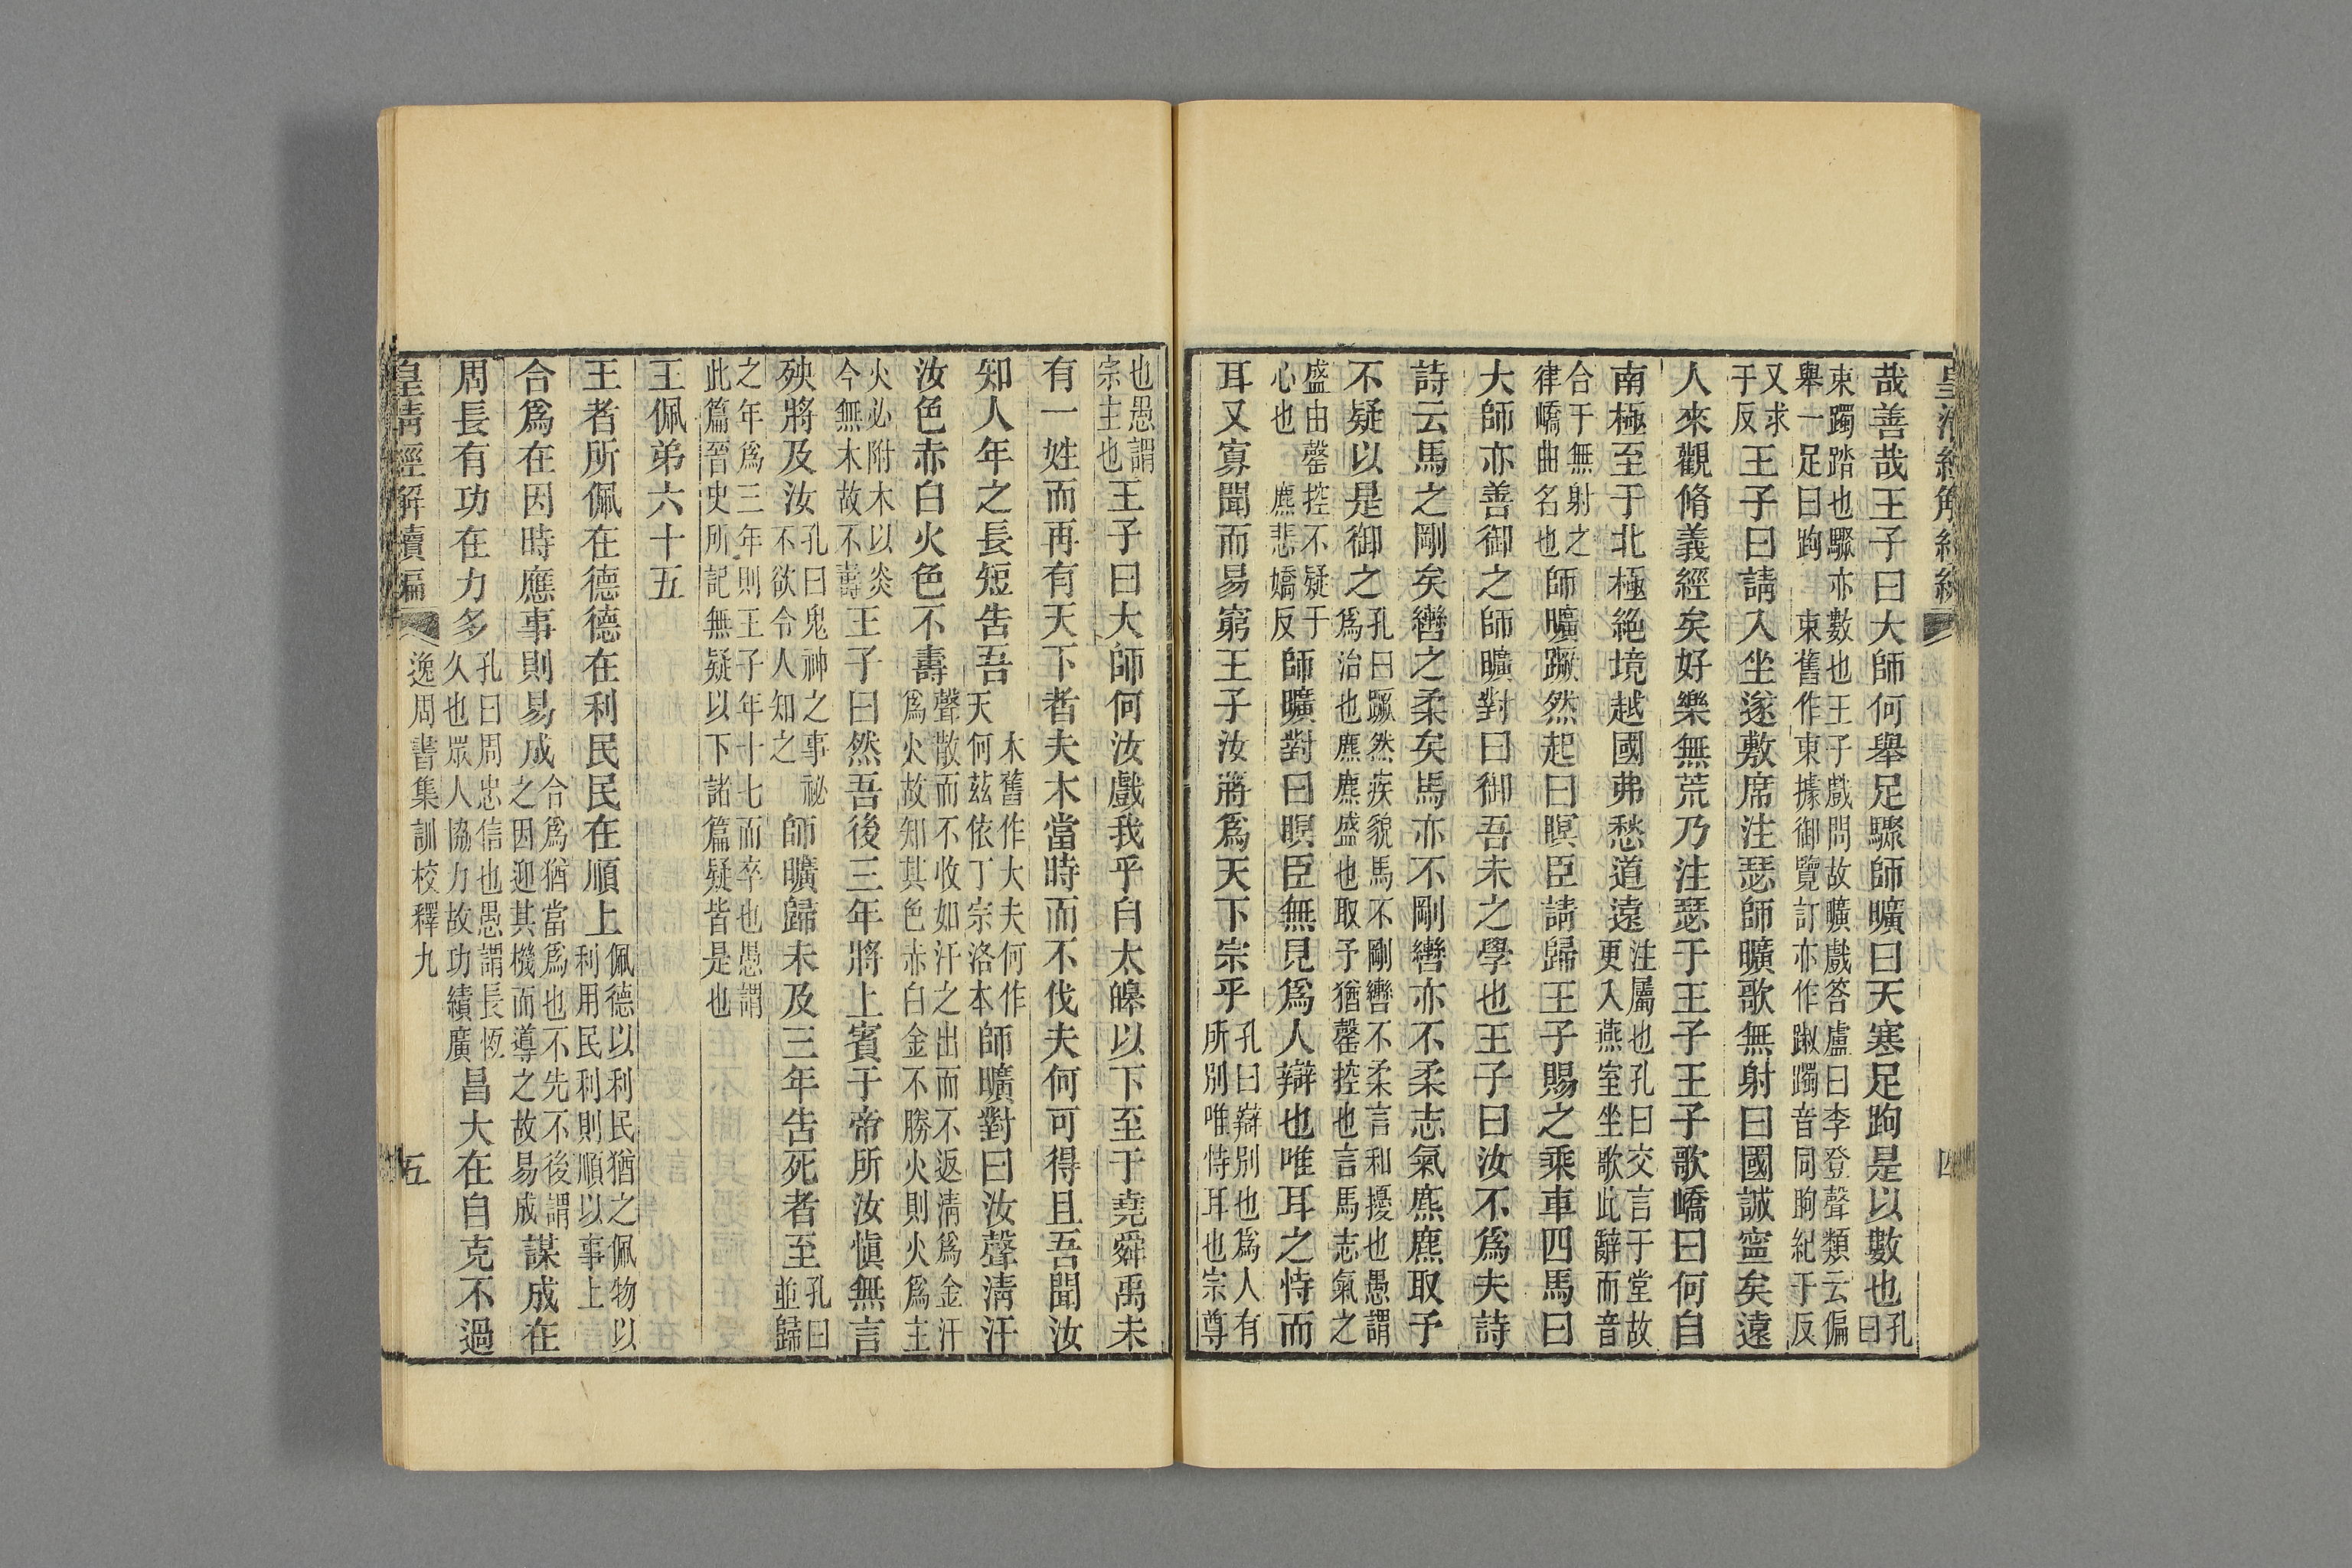 皇清經解續編　四
哉善哉王子曰大師何舉足驟師曠曰天寒足跔是以數也孔
曰
束躅踏也驟亦數也王子戲問故曠戲答盧曰李登聲類云偏
舉一足曰跔　束舊作東據御覽訂亦作踧躅音同朐紀于反
又求
于反
王子曰請入坐遂敷席注瑟師曠歌無射曰國誠寧矣遠
人來觀脩義經矣好樂無荒乃注瑟于王子王子歌嶠曰何自
南極至于北極絶境越國弗愁道遠
注屬也孔曰交言于堂故
更入燕室坐歌此辭而音
合于無射之
律嶠曲名也
師曠蹶然起曰瞑臣請歸王子賜之乘車四馬曰
大師亦善御之師曠對曰御吾未之學也王子曰汝不爲夫詩
詩云馬之剛矣轡之柔矣馬亦不剛轡亦不柔志氣麃麃取予
不疑以是御之
孔曰蹶然疾貌馬不剛轡不柔言和擾也愚謂
爲治也麃麃盛也取予猶罄控也言馬志氣之
盛由罄控不疑于
心也　麃悲嬌反
師曠對曰瞑臣無見爲人辯也唯耳之恃而
耳又寡聞而易窮王子汝將爲天下宗乎
孔曰辯別也爲人有
所別唯恃耳也宗尊
也愚謂
宗主也
王子曰大師何汝戲我乎自太皞以下至于堯舜禹未
有一姓而再有天下者夫木當時而不伐夫何可得且吾聞汝
知人年之長短告吾
木舊作大夫何作
天何茲依丁宗洛本
師曠對曰汝聲清汗
汝色赤白火色不壽
聲散而不收如汗之出而不返清爲金汗
爲火故知其色赤白金不勝火則火爲主
火必附木以炎
今無木故不壽
王子曰然吾後三年將上賓于帝所汝愼無言
殃將及汝
孔曰鬼神之事祕
不欲令人知之
師曠歸未及三年告死者至
孔曰
並歸
之年爲三年則王子年十七而卒也愚謂
此篇晉史所記無疑以下諸篇疑皆是也
王佩弟六十五
王者所佩在德德在利民民在順上
佩德以利民猶之佩物以
利用民利則順以事上
合爲在因時應事則易成
合爲猶當爲也不先不後謂
之因迎其機而導之故易成
謀成在
周長有功在力多
孔曰周忠信也愚謂長恆
久也眾人協力故功績廣
昌大在自克不過
皇清經解續編　逸周書集訓校釋九　五